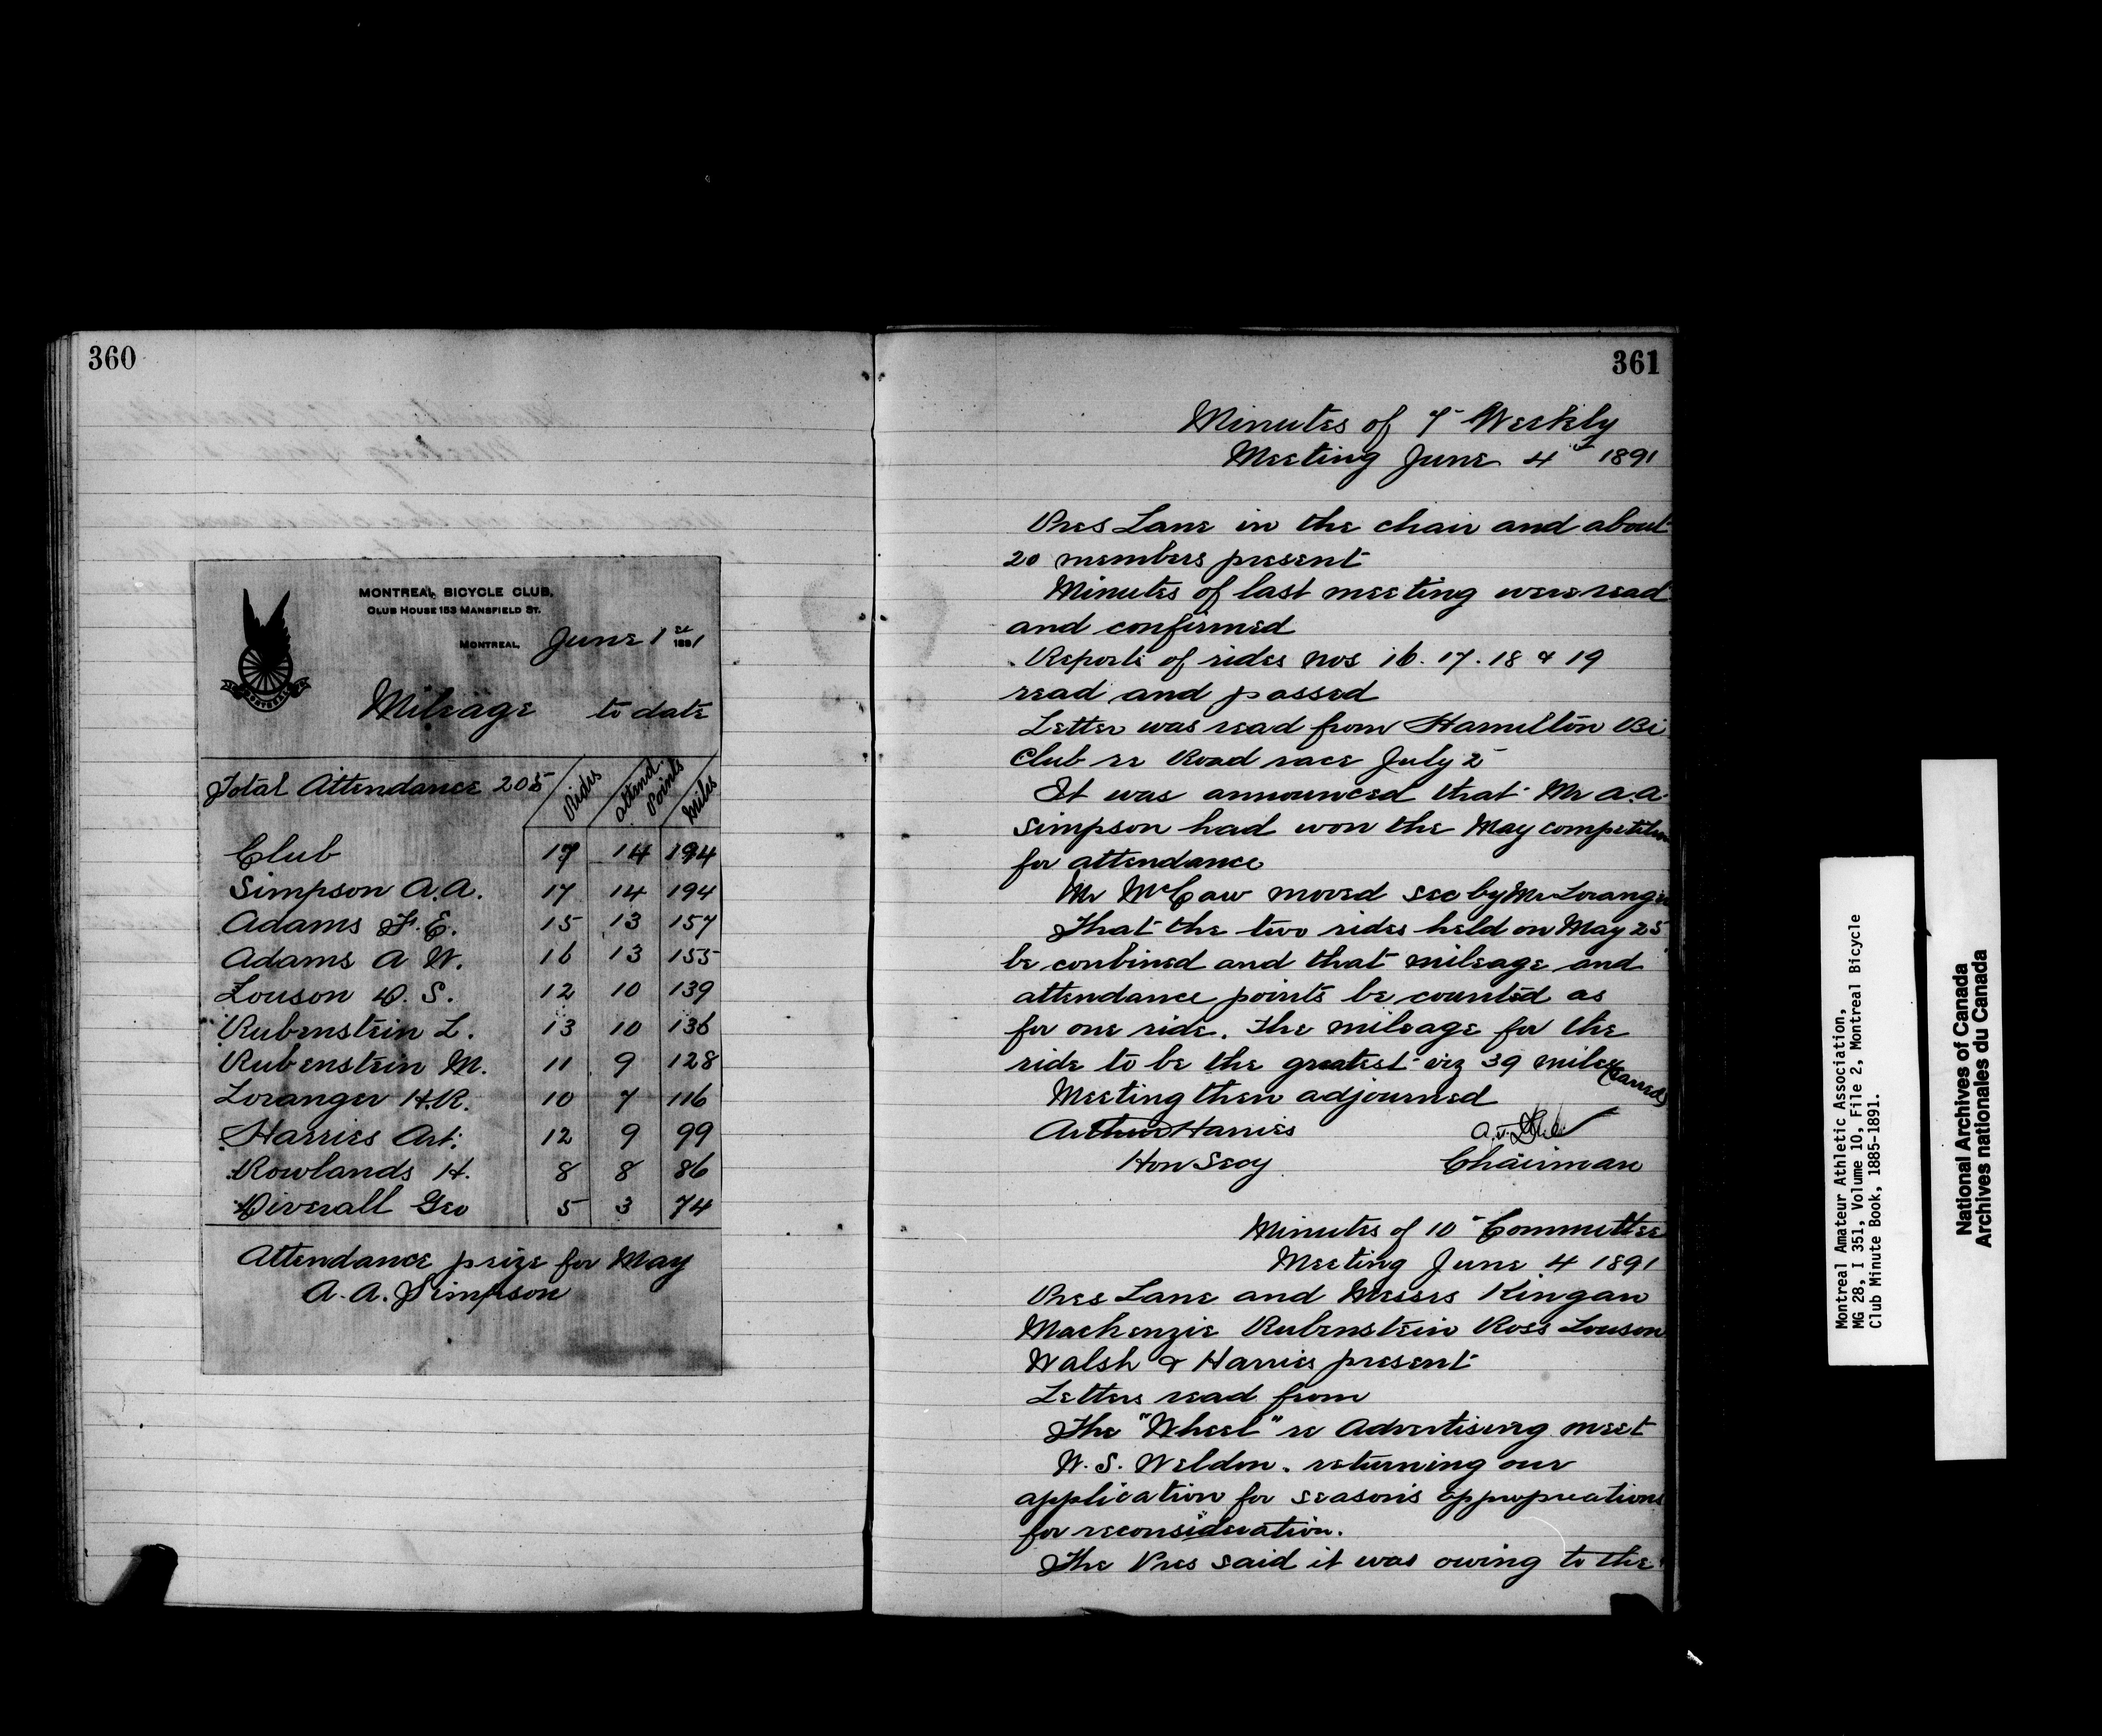 360
MONTREAL BICYCLE CLUB,
CLUB HOUSE 153 MANSFIELD ST.
MONTREAL, June 1st 1891
Mileage to date
Total Attendance 205 Rides Attend. Points Miles
Club 17 14 194
Simpson A.A. 17 14 194
Adams F.E. 15 13 157
Adams A W. 16 13 155
Louson D. S. 12 10 139
Rubenstein L. 13 10 136
Rubenstein M. 11 9 128
Loranger H.R. 10 7 116
Harries Art: 12 9 99
Rowlands H. 8 8 86
Diverall Geo 5 3 74
Attendance prize for May
A. A. Simpson
361
Minutes of 7 Weekly
Meeting June 4 1891
Pres Lane in the chair and about
20 members present
Minutes of last meeting were read
and confirmed
Reports of rides nos 16. 17. 18 & 19
read and passed
Letter was read from Hamilton Bi
Club re Road race July 2
It was announced that Mr A.A.
Simpson had won the May competition
for attendance
Mr McCaw moved sec by Mr Loranger
That the two rides held on May 25
be conbined and that mileage and
attendance points be counted as
for one ride. The mileage for the
ride to be the greatest viz 39 miles (Carried)
Meeting then adjourned
Arthur Harries
Hon Secy Chairman
Minutes of 10 Committee
Meeting June 4 1891
Pres Lane and Messrs Kingan
Mackenzie Rubenstein Ross Louson
Walsh & Harries present
Letters read from
The "Wheel" re Advertising meet
W. S. Weldon. returning our
application for season's appropriations
for reconsideration.
The Pres said it was owing to the
Montreal Amateur Athletic Association,
MG 28, I 351, Volume 10, File 2, Montreal Bicycle
Club Minute Book, 1885-1891.
National Archives of Canada
Archives nationales du Canada